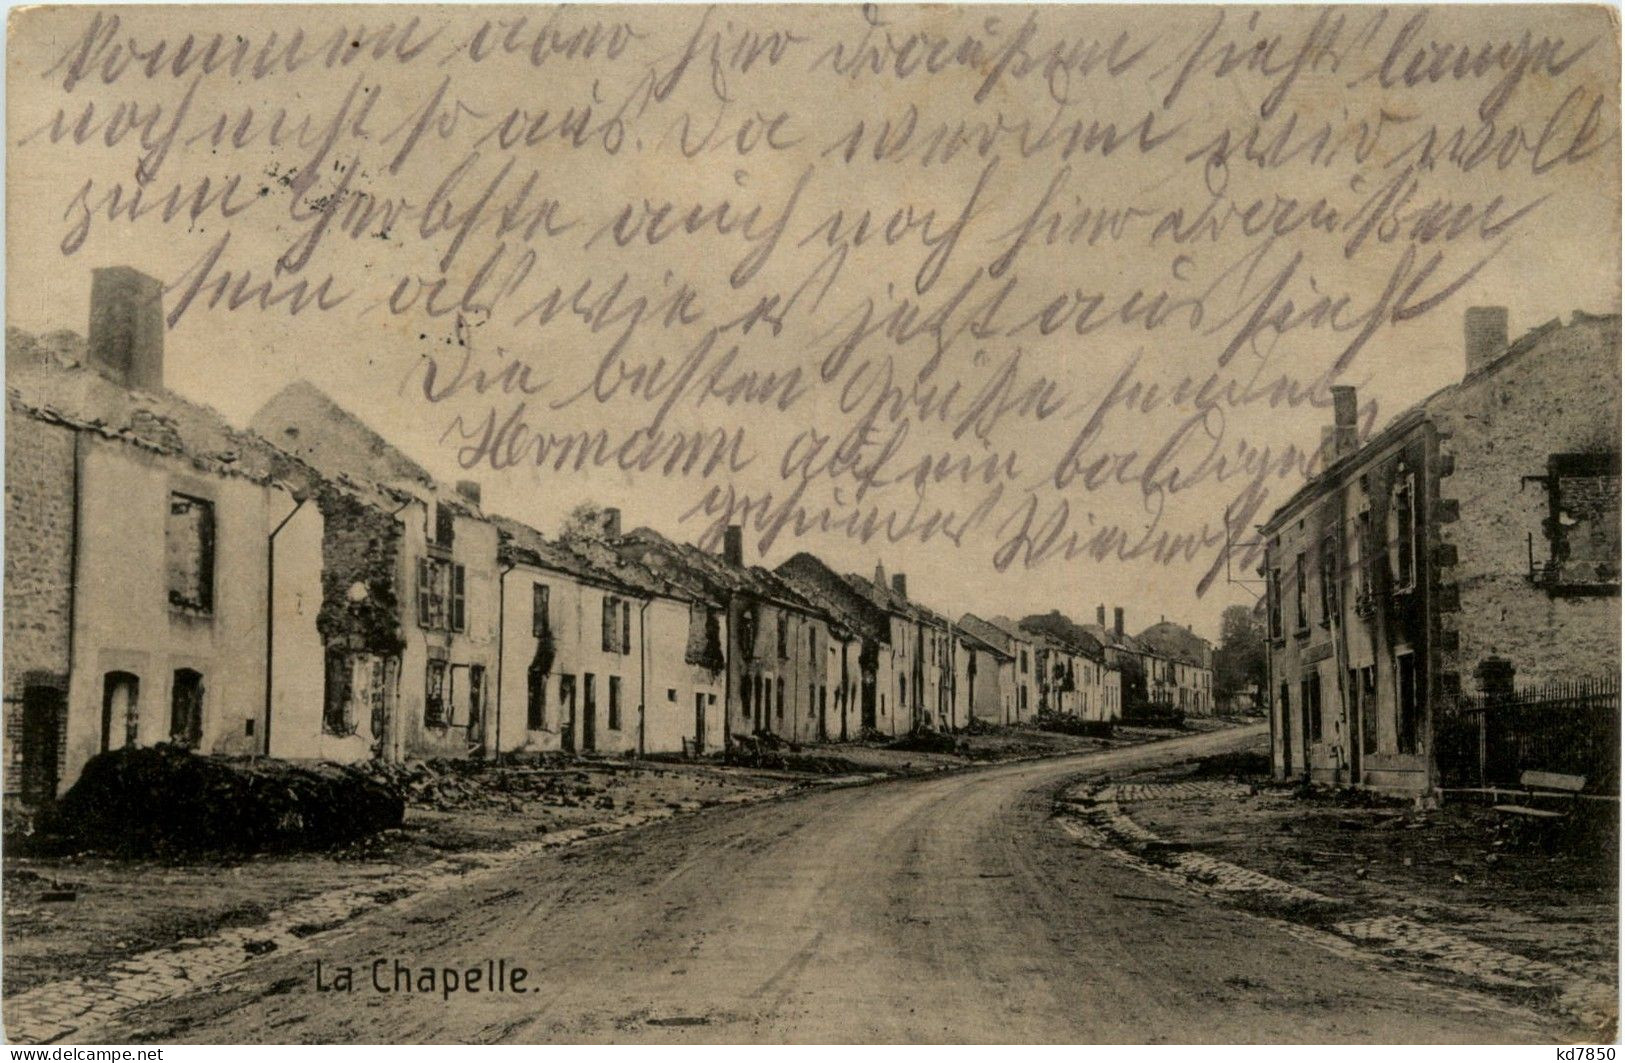 kommen aber hier draußen sieht lange
noch nicht so aus. Da werden wir woll
zum Herbste auch noch hier draußen
sein als wie es jetzt aus sieht
Die besten Grüße sendet
Hermann auf ein baldiges
gesundes Wiedersehn
La Chapelle.
www.delcampe.net
kd7850